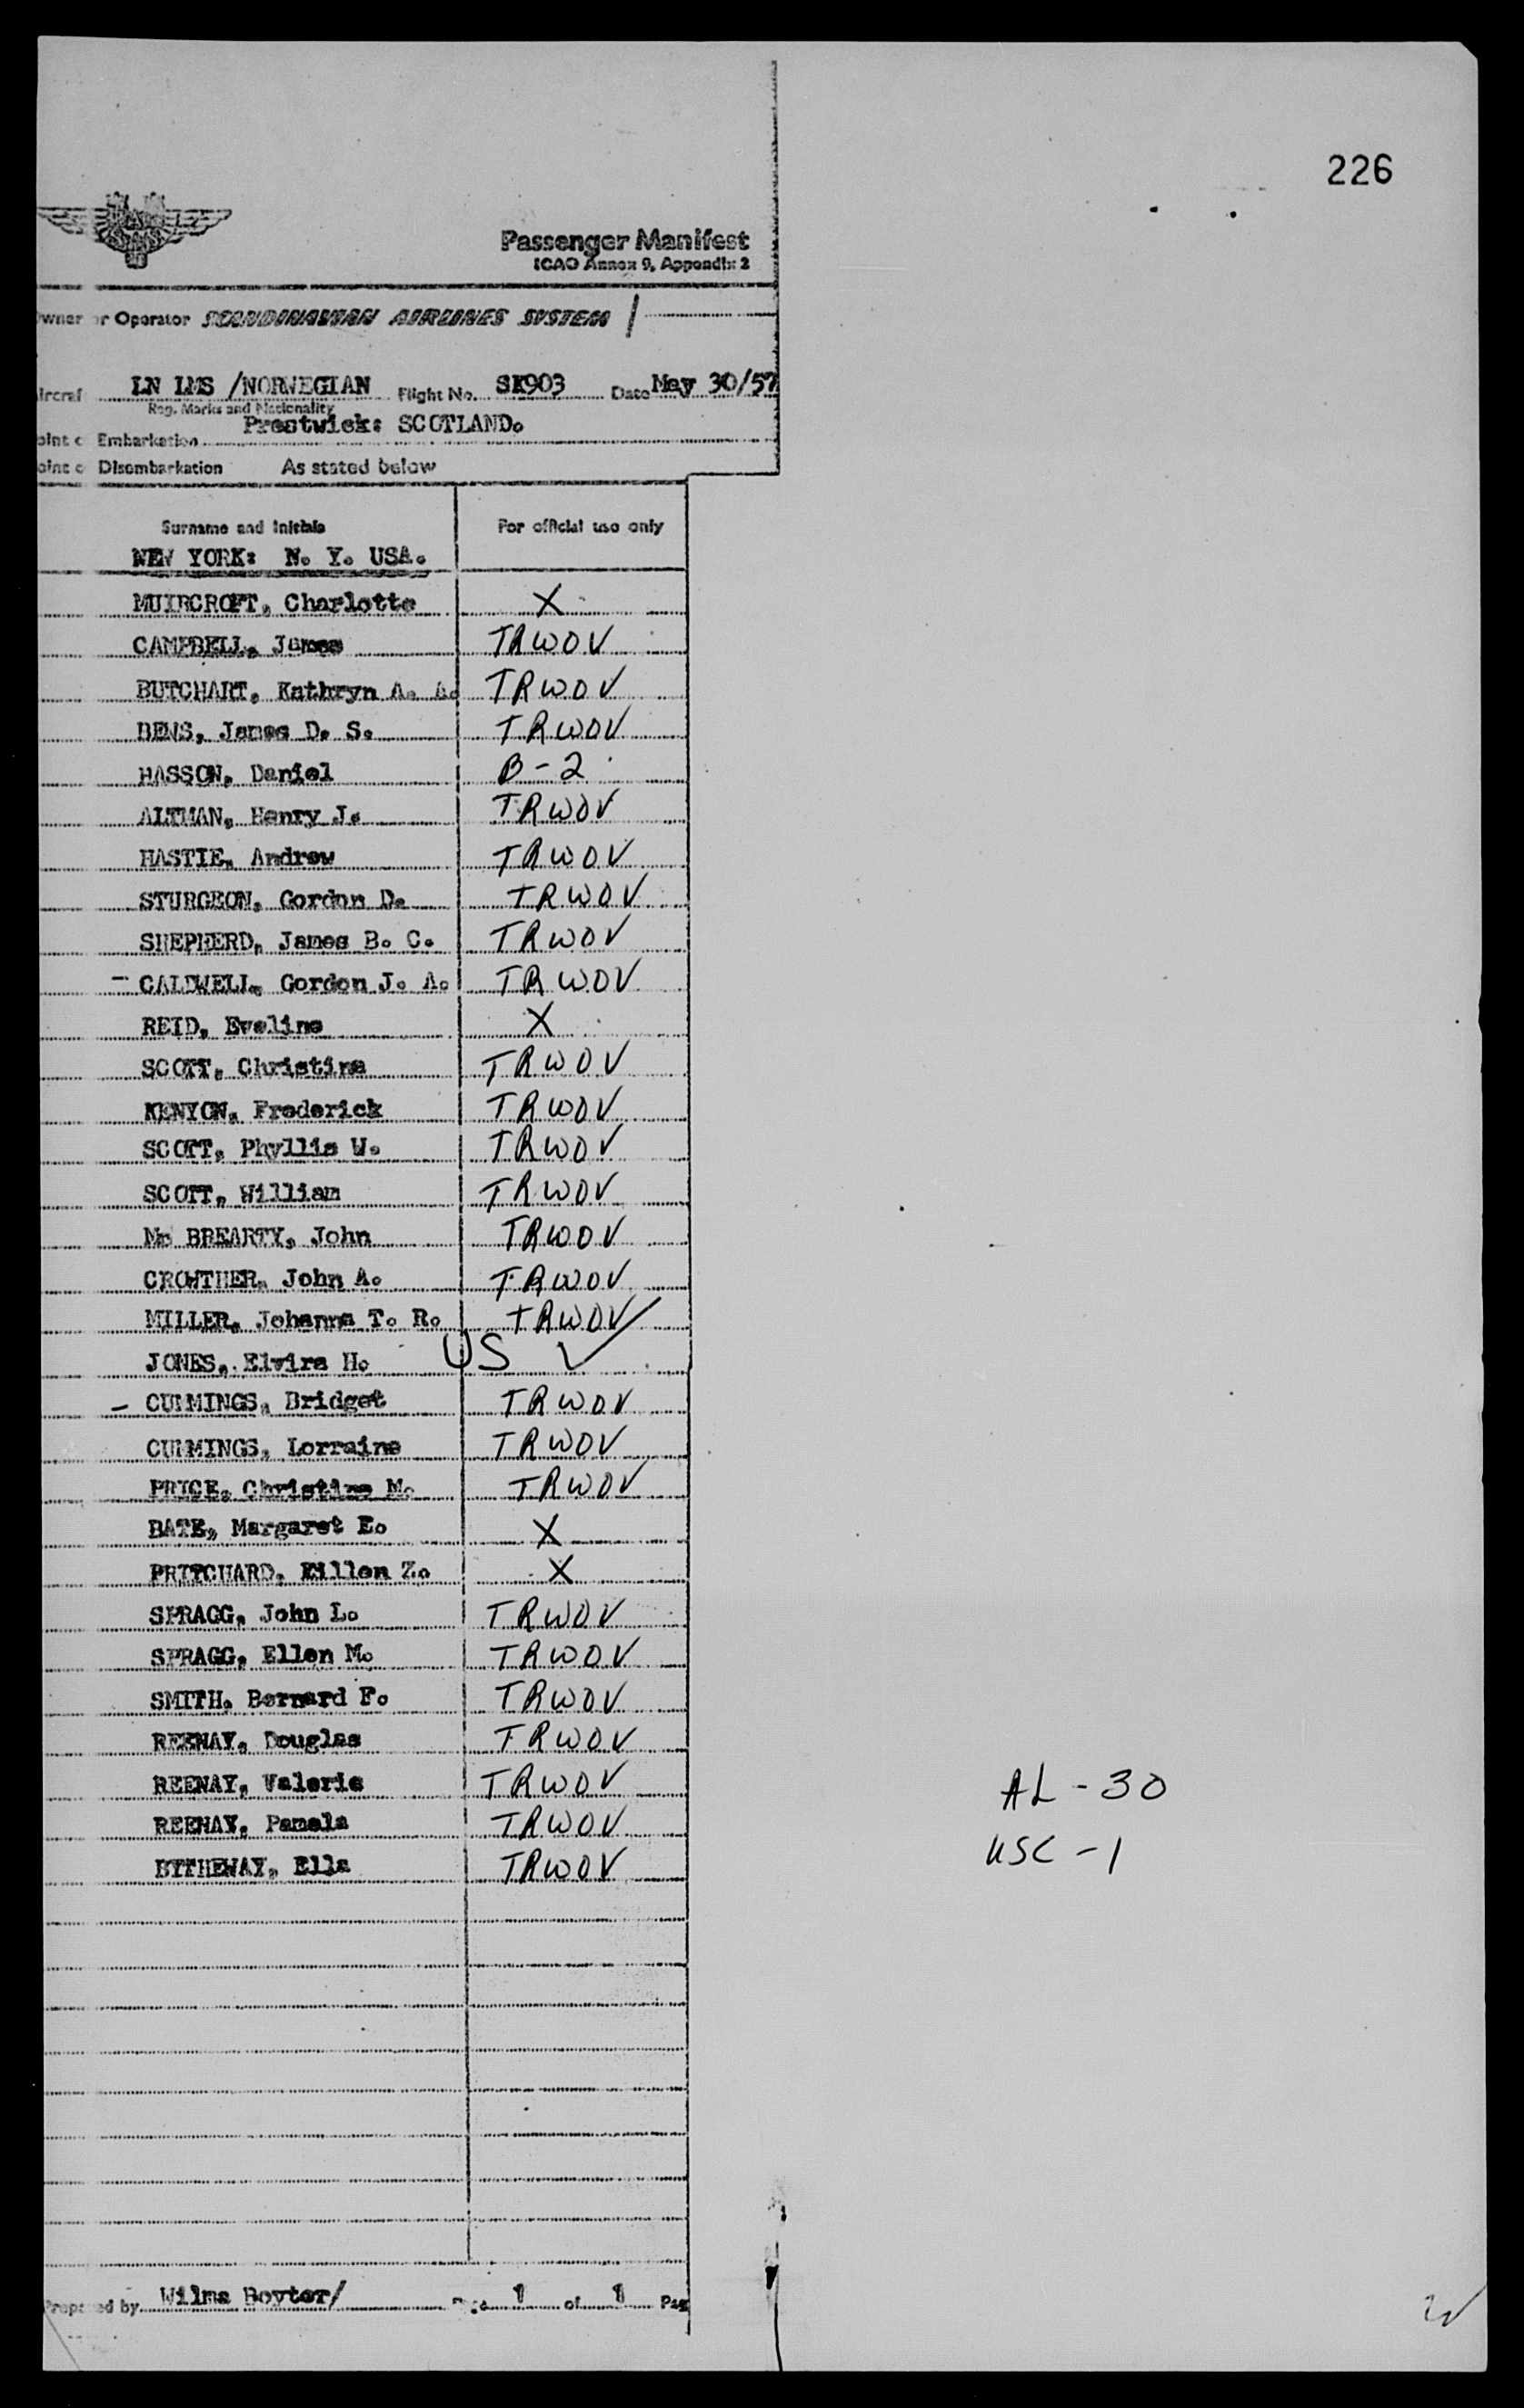 226
Passenger Manifest
ICAO Annex 9, Appendix 2
wner or Operator SCANDINAVIAN AIRLINES SYSTEM /
ircraf LN LMS /NORWEGIAN Flight No. SK903 Date May 30/57
Reg. Marks and Nationality
oint o Embarkation Prestwick: SCOTLAND.
oint o Disembarkation As stated below
Surname and Initials For official use only
NEW YORK: N. Y. USA.
MUIRCROFT, Charlotte X
CAMPBELL, James TRWOV
BUTCHART, Kathryn A. A. TRWOV
BEWS, James D. S. TRWOV
HASSON, Daniel B-2
ALTMAN, Henry J. TRWOV
HASTIE, Andrew TRWOV
STURGEON, Gordon D. TRWOV
SHEPHERD, James B. C. TRWOV
- CALDWELL, Gordon J. A. TRWOV
REID, Eveline X
SCOTT, Christina TRWOV
KENYON, Frederick TRWOV
SCOTT, Phyllis W. TRWOV
SCOTT, William TRWOV
Mc BREARTY, John TRWOV
CROWTHER, John A. TRWOV
MILLER, Johanna T. R. TRWOV
JONES, Elvira H. US ✓
- CUMMINGS, Bridget TRWOV
CUMMINGS, Lorraine TRWOV
PRICE, Christine M. TRWOV
BATE, Margaret E. X
PRITCHARD, Eillen Z. X
SPRAGG, John L. TRWOV
SPRAGG, Ellen M. TRWOV
SMITH, Bernard F. TRWOV
REENAY, Douglas TRWOV
REENAY, Valerie TRWOV
REENAY, Pamela TRWOV
BYTHEWAY, Ella TRWOV
AL - 30
USC - 1
Prepared by Wilma Boyter/ 1 of 1 Pag